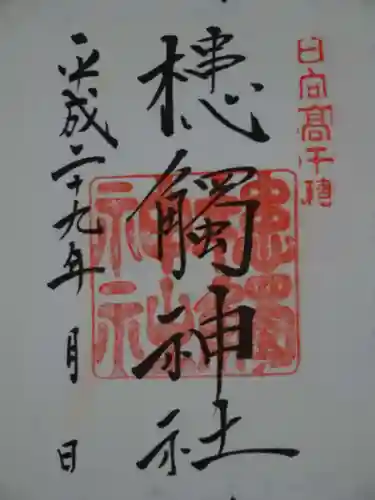 日向高千穂
槵觸神社
平成二十九年 月 日
槵觸
神社